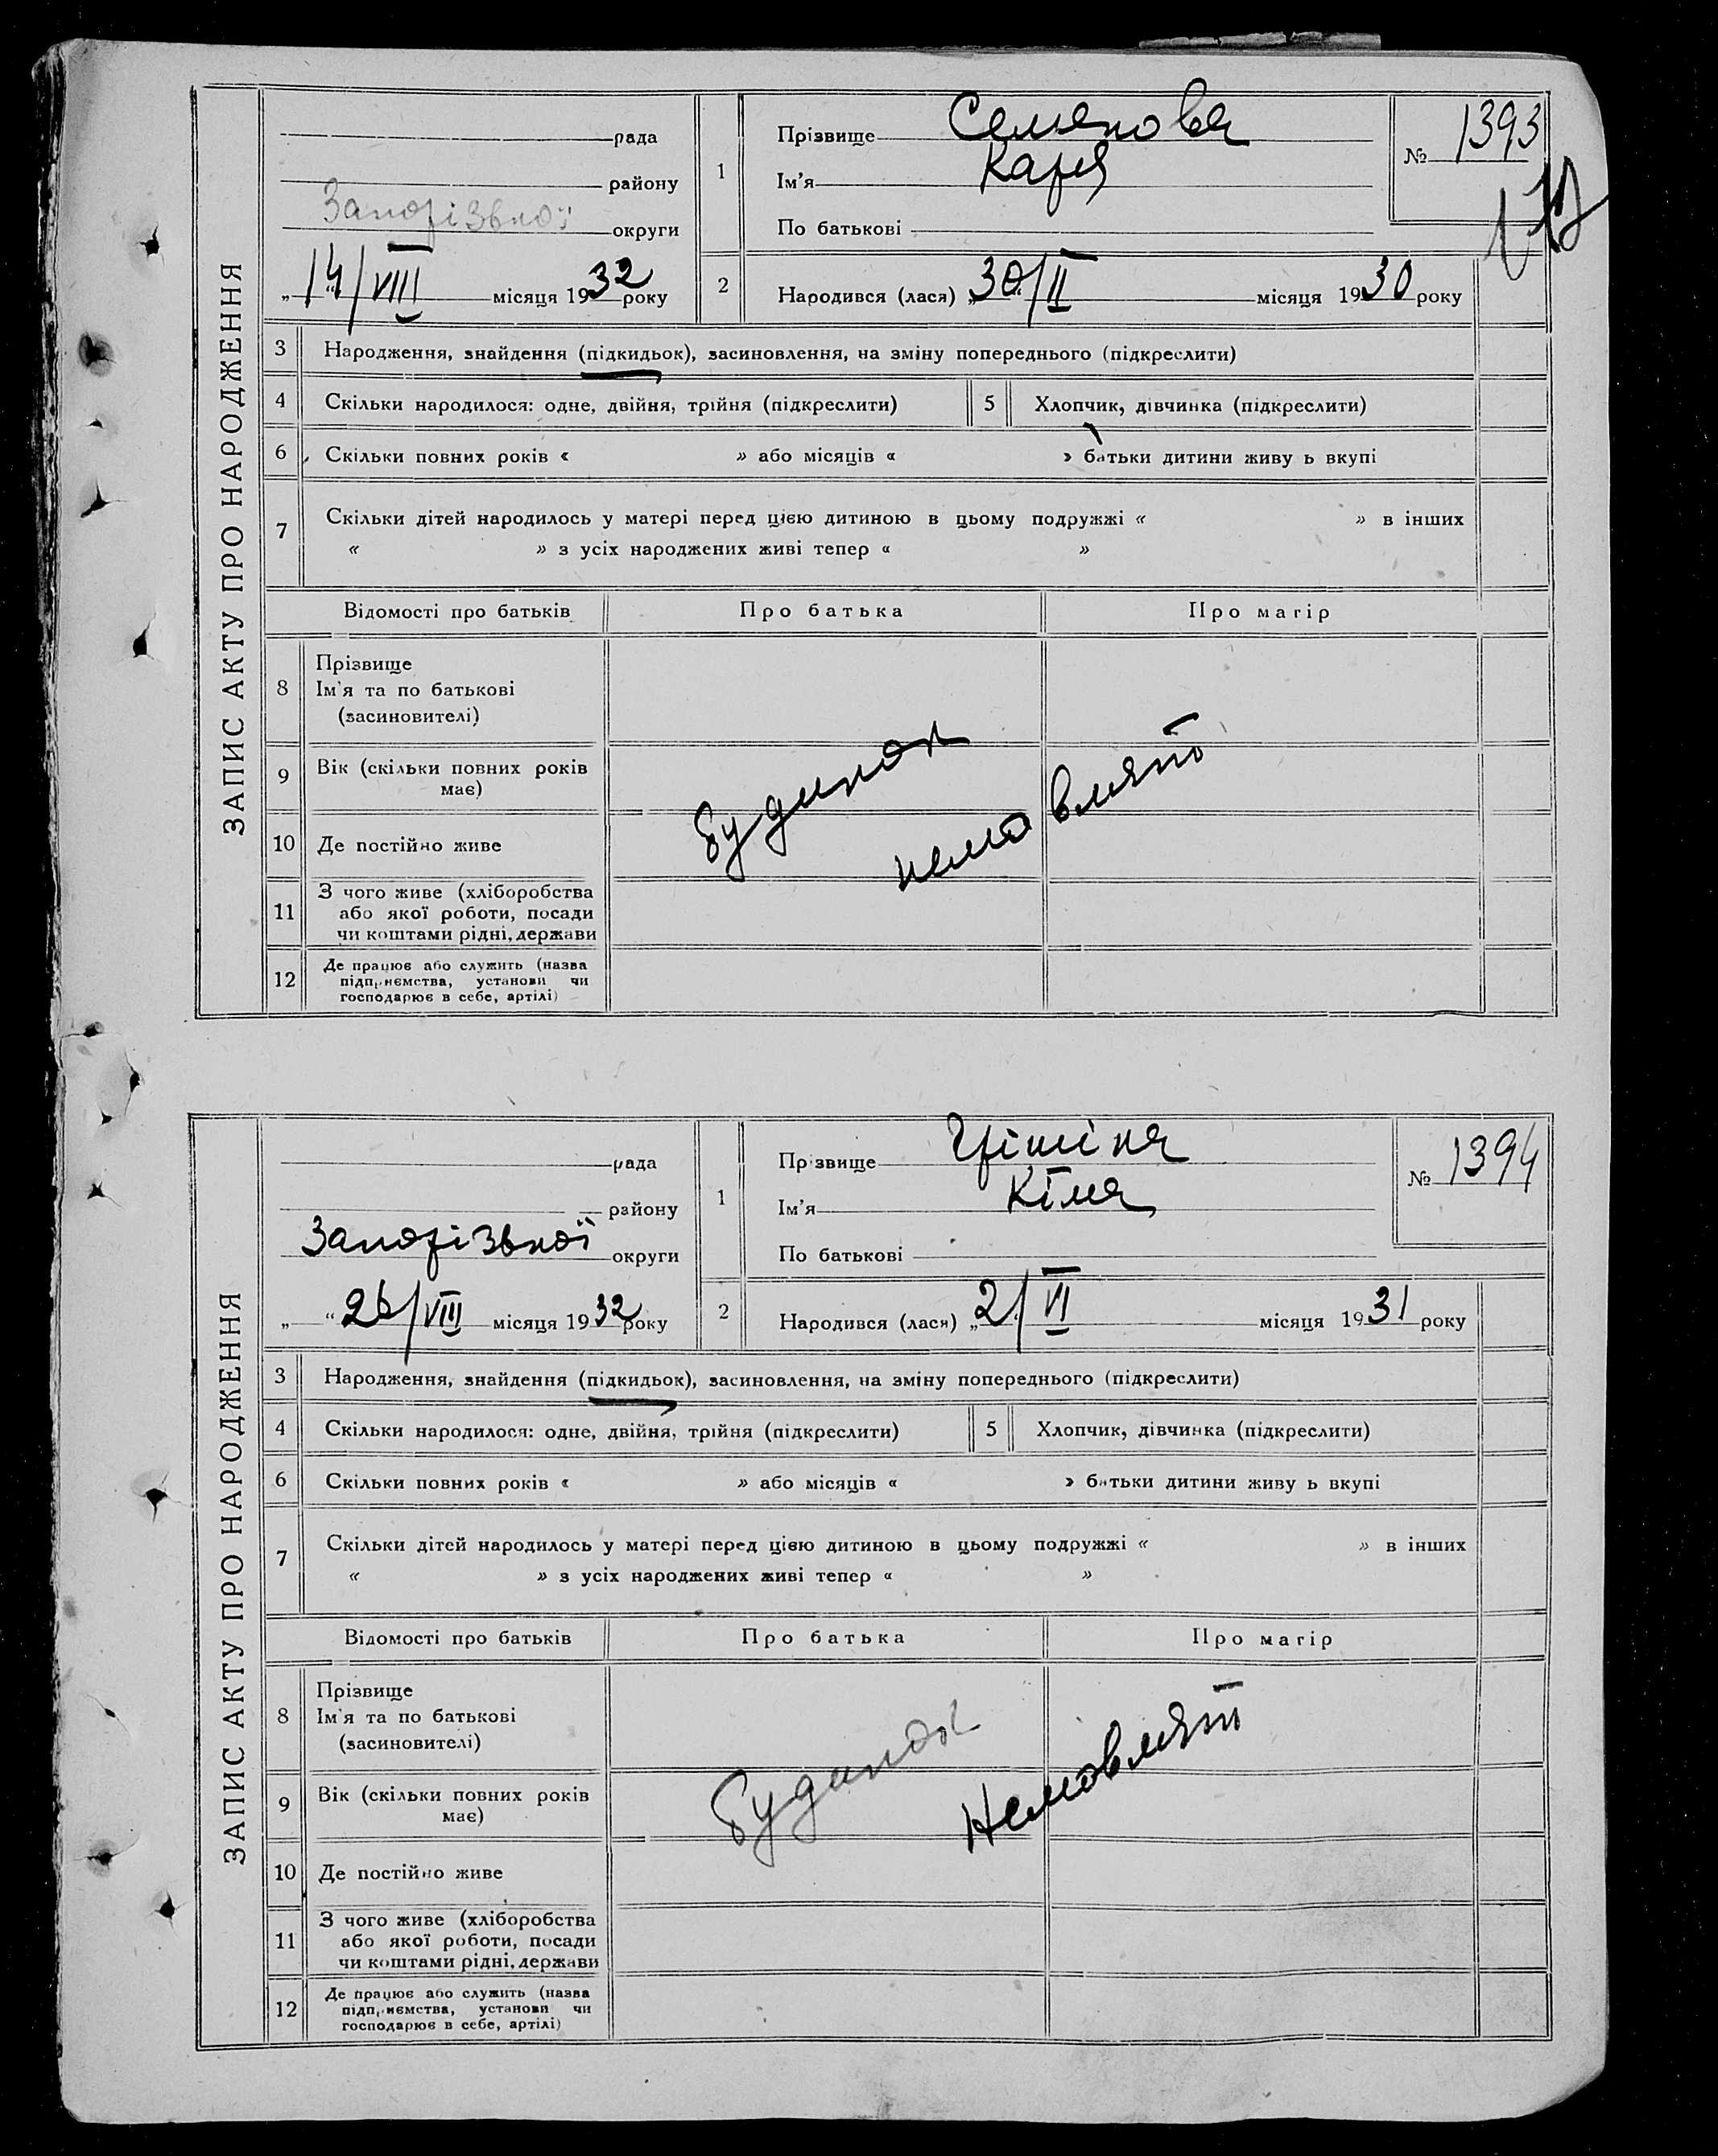 ЗАПИС АКТУ ПРО НАРОДЖЕННЯ
рада
району
Запорізької округи
„14/VIII місяця 1932 року
1 Прізвище Семенова
Ім'я
По батькові
№ 1393
2 Народився (лася) „30/II місяця 1930 року
3 Народження, знайдення (підкидьок), засиновлення, на зміну попереднього (підкреслити)
4 Скільки народилося: одне, двійня, трійня (підкреслити)
5 Хлопчик, дівчинка (підкреслити)
6 Скільки повних років « » або місяців « » батьки дитини живу ь вкупі
7 Скільки дітей народилось у матері перед цією дитиною в цьому подружжі « » в інших
« » з усіх народжених живі тепер « »
Відомості про батьків Про батька Про матір
8 Прізвище
Ім'я та по батькові
(засиновителі)
9 Вік (скільки повних років
має)
10 Де постійно живе
11 З чого живе (хліборобства
або якої роботи, посади
чи коштами рідні, держави
12 Де працює або служить (назва
підприємства, установи чи
господарює в себе, артілі)
Будинок
немовлят
ЗАПИС АКТУ ПРО НАРОДЖЕННЯ
рада
району
Запорізької округи
„ “ 26/VIII місяця 1932 року
1 Прізвище Грішина
Ім'я Кіма
По батькові
№ 1394
2 Народився (лася) „2/VI місяця 1931 року
3 Народження, знайдення (підкидьок), засиновлення, на зміну попереднього (підкреслити)
4 Скільки народилося: одне, двійня, трійня (підкреслити)
5 Хлопчик, дівчинка (підкреслити)
6 Скільки повних років « » або місяців « » батьки дитини живу ь вкупі
7 Скільки дітей народилось у матері перед цією дитиною в цьому подружжі « » в інших
« » з усіх народжених живі тепер « »
Відомості про батьків Про батька Про матір
8 Прізвище
Ім'я та по батькові
(засиновителі)
9 Вік (скільки повних років
має)
10 Де постійно живе
11 З чого живе (хліборобства
або якої роботи, посади
чи коштами рідні, держави
12 Де працює або служить (назва
підприємства, установи чи
господарює в себе, артілі)
Будинок
Немовлят